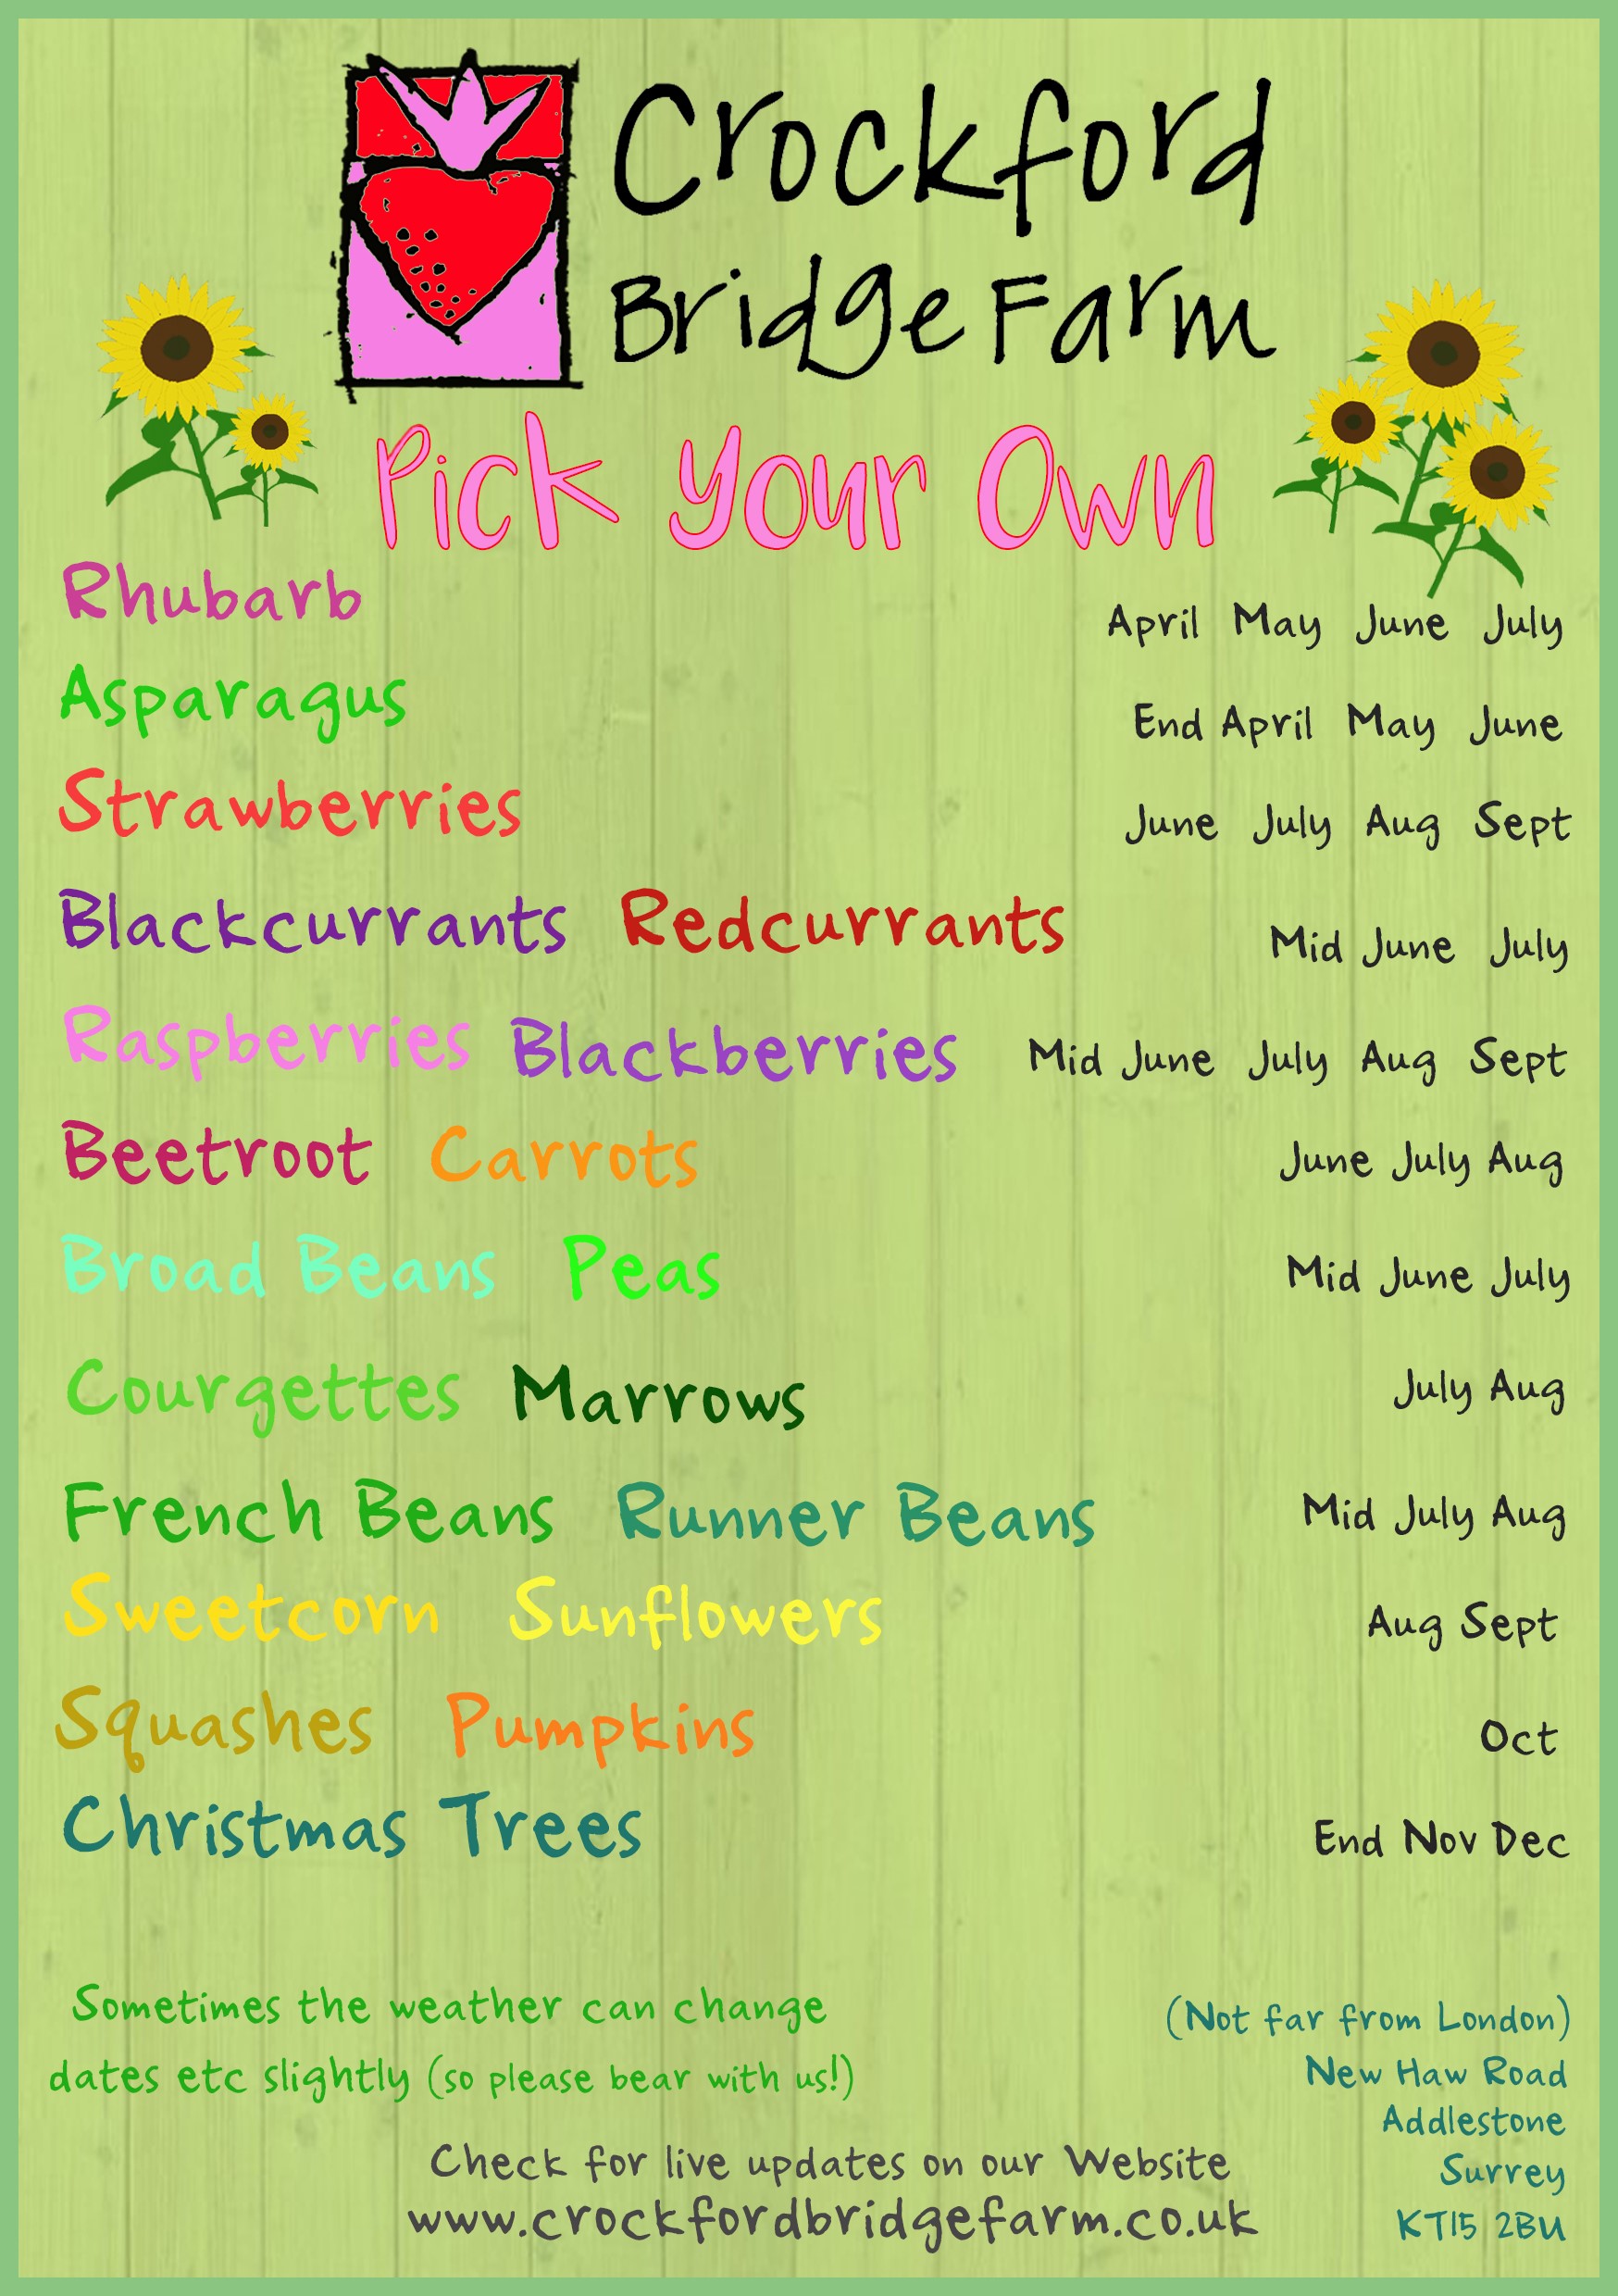 Crockford
Bridge Farm
Pick Your Own
Rhubarb April May June July
Asparagus End April May June
Strawberries June July Aug Sept
Blackcurrants Redcurrants Mid June July
Raspberries Blackberries Mid June July Aug Sept
Beetroot Carrots June July Aug
Broad Beans Peas Mid June July
Courgettes Marrows July Aug
French Beans Runner Beans Mid July Aug
Sweetcorn Sunflowers Aug Sept
Squashes Pumpkins Oct
Christmas Trees End Nov Dec
Sometimes the weather can change
dates etc slightly (so please bear with us!)
(Not far from London)
New Haw Road
Addlestone
Surrey
KT15 2BU
Check for live updates on our Website
www.crockfordbridgefarm.co.uk